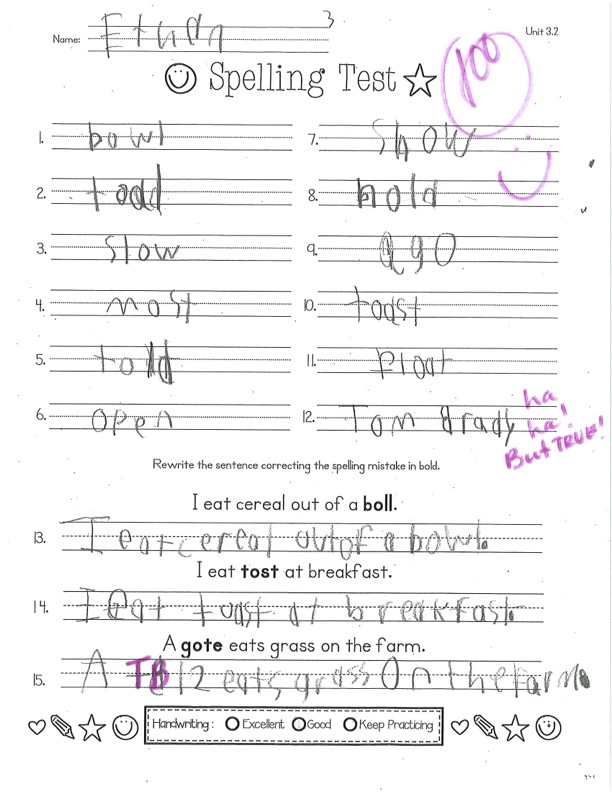 3
Name: Ethan
Unit 3.2
Spelling Test
100
1. bowl
2. toad
3. slow
4. most
5. told
6. open
7. Show
8. hold
9. ago
10. toast
11. Float
12. Tom Brady
ha
ha!
But TRUE!
Rewrite the sentence correcting the spelling mistake in bold.
I eat cereal out of a boll.
13. I eat cereal out of a bowl.
I eat tost at breakfast.
14. I Eat toast at breakfast.
A gote eats grass on the farm.
15. A TB 12 eats grass On the farm.
Handwriting: Excellent Good Keep Practicing